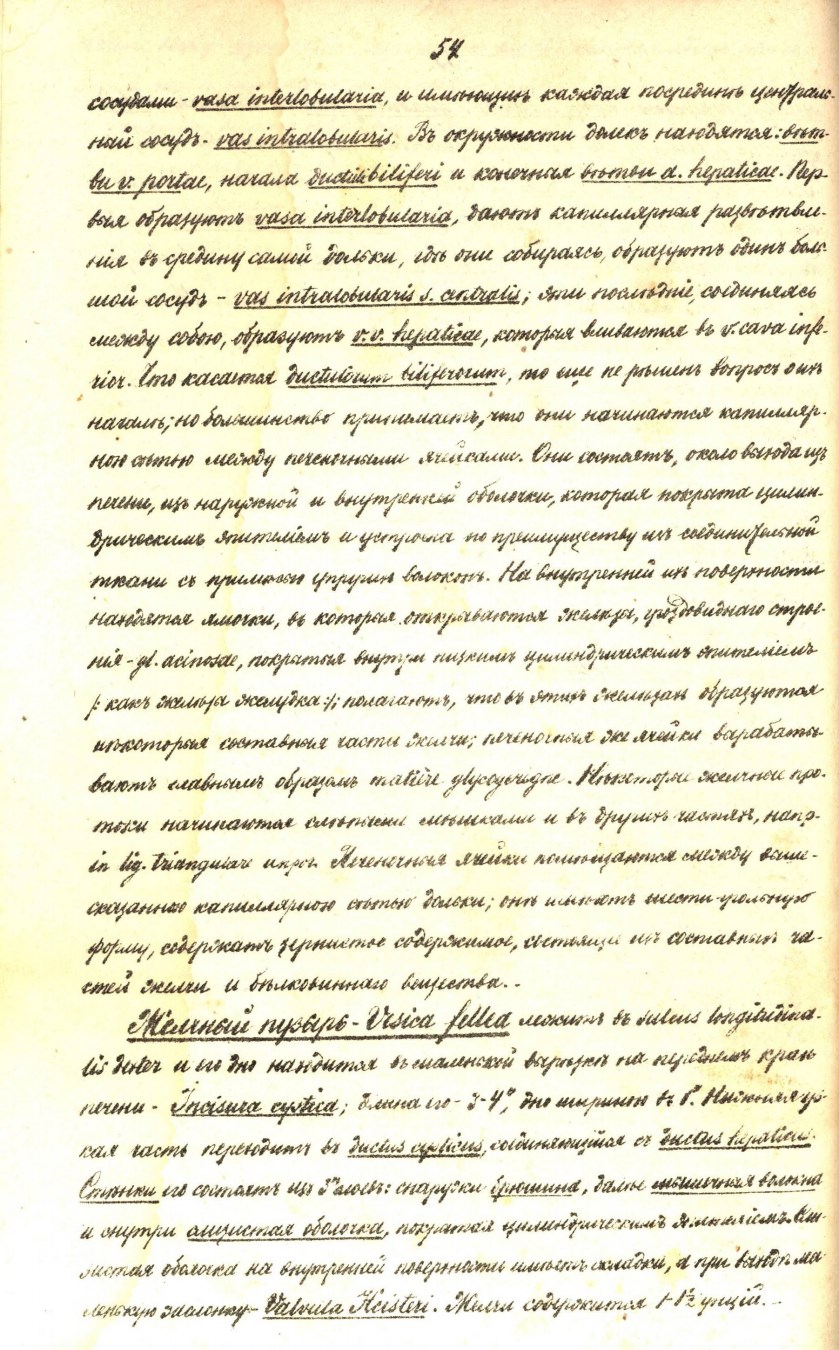 54
сосудами - vasa interlobularia, и имѣющихъ каждая посрединѣ централь-
ный сосудъ - vas intralobularis. Въ окружности долекъ находятся: вѣт-
ви v. portae, начала ductuli biliferi и конечныя вѣтви a. hepaticae. Пер-
выя образуютъ vasa interlobularia, даютъ капиллярныя развѣтвле-
нія въ средину самой дольки, гдѣ они собираясь, образуютъ одинъ боль-
шой сосудъ - vas intralobularis s. centralis; эти послѣдніе, соединяясь
между собою, образуютъ v. v. hepaticae, которыя вливаются въ v. cava infe-
rior. Что касается ductulorum biliferorum, то еще не рѣшенъ вопросъ о ихъ
началѣ; но большинство принимаетъ, что они начинаются капилляр-
ною сѣтью между печеночными ячейками. Они состоятъ, около выхода изъ
печени, изъ наружной и внутренней оболочки, которая покрыта цилин-
дрическимъ эпителіемъ и устроена по преимуществу изъ соединительной
ткани съ примѣсью упругихъ волоконъ. На внутренней ихъ поверхности
находятся ямочки, въ которыя открываются железы, гроздовиднаго строе-
нія - gl. acinosae, покрытыя внутри низкимъ цилиндрическимъ эпителіемъ
/: какъ железы желудка :/; полагаютъ, что въ этихъ железахъ образуются
нѣкоторыя составныя части желчи; печеночныя же ячейки вырабаты-
ваютъ главнымъ образомъ matière glycogène. Нѣкоторые желчные про-
токи начинаются слѣпыми мѣшками и въ другихъ частяхъ, напр.
in lig. triangulare и проч. Печеночныя ячейки помѣщаются между выше-
сказанною капиллярною сѣтью дольки; онѣ имѣютъ шести-угольную
форму, содержатъ зернистое содержимое, состоящее изъ составныхъ ча-
стей желчи и бѣлковиннаго вещества. -
Желчный пузырь - Vesica fellea лежитъ въ sulcus longitudina-
lis dexter и его дно находится въ маленькой вырѣзкѣ на переднемъ краѣ
печени - Incisura cystica; длина его - 3-4", дно шириною въ 1". Нижняя уз-
кая часть переходитъ въ ductus cysticus, соединяющійся съ ductus hepaticus.
Стѣнки его состоятъ изъ 3 слоевъ: снаружи брюшина, далѣе мышечныя волокна
и внутри слизистая оболочка, покрытая цилиндрическимъ эпителіемъ. Сли-
зистая оболочка на внутренней поверхности имѣетъ складки, а при выходѣ ма-
ленькую заслонку - Valvula Heisteri. Желчи содержится 1-1½ унціи. -